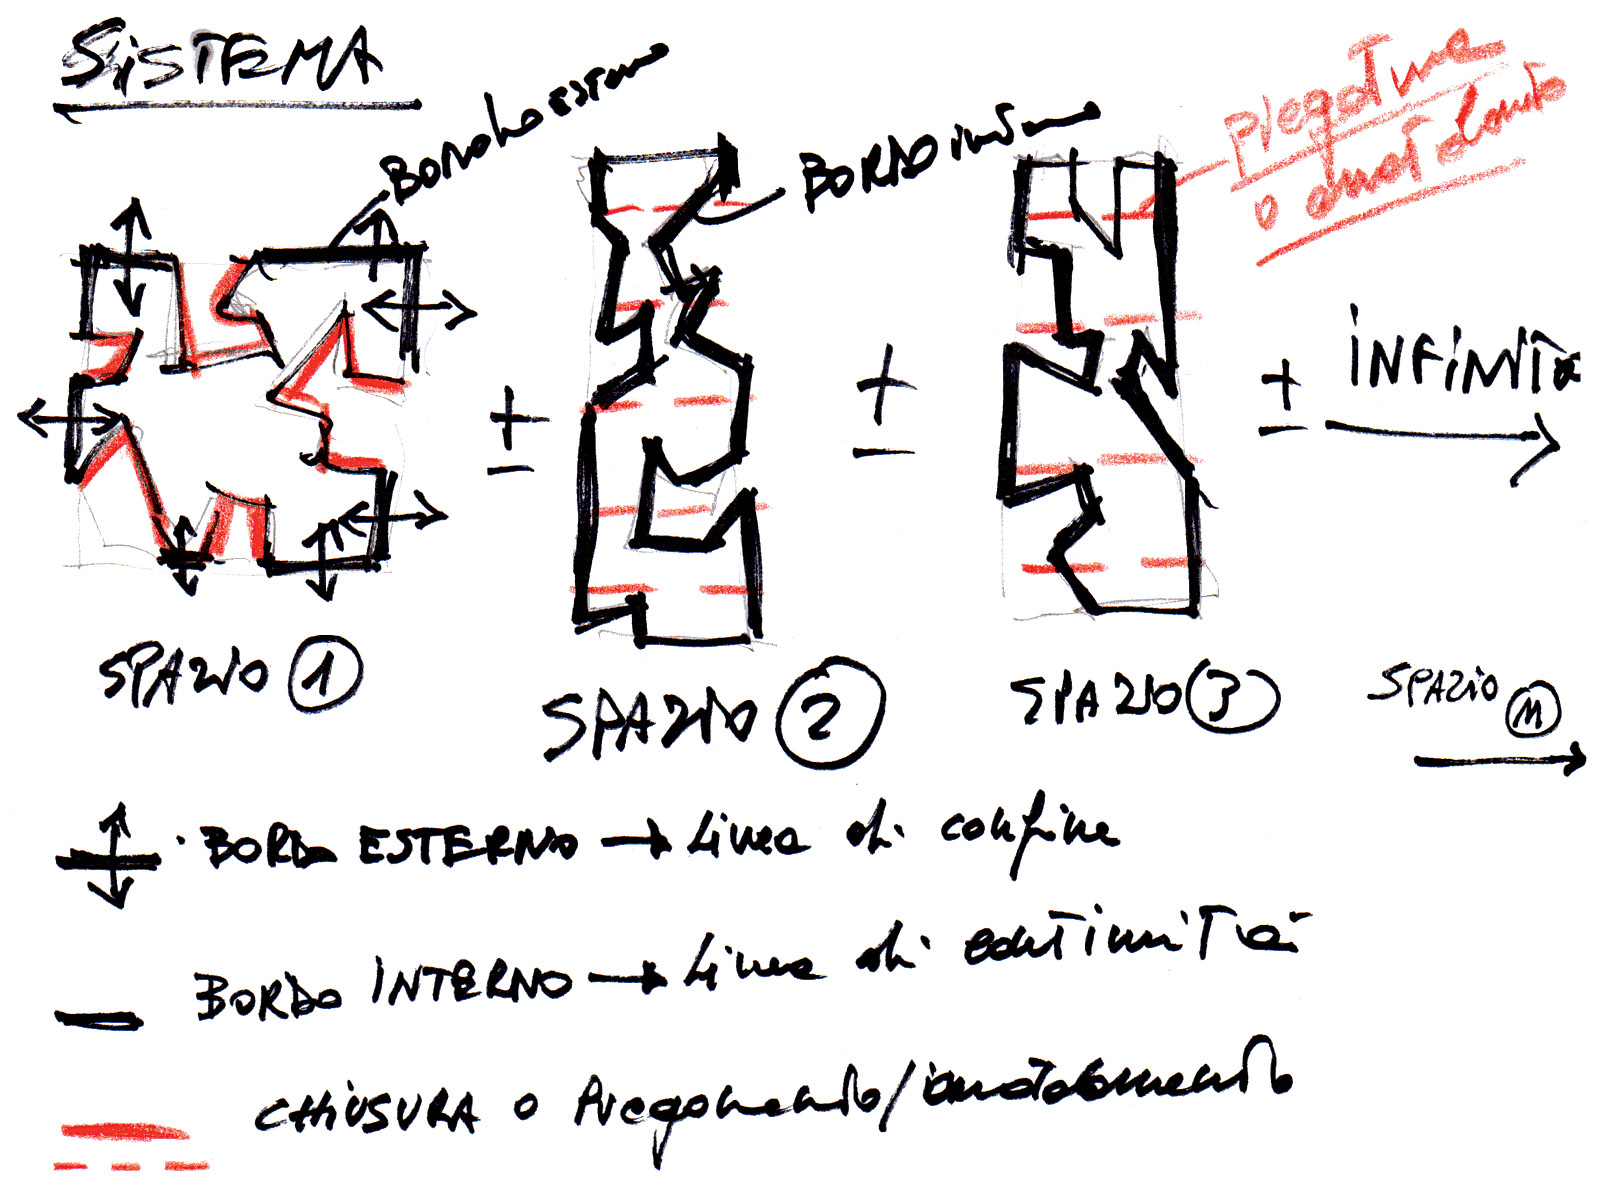 SiSTEMA
BORDO ESTERNO
BORDO int
piegature
o
±
±
±
iNFiNiTà
SPAZIO 1
SPAZIO 2
SPAZIO 3
SPAZiO n
BORDO ESTERNO → Linea di confine
BORDO INTERNO → Linea di continuità
CHiUSURA o Piegamento/